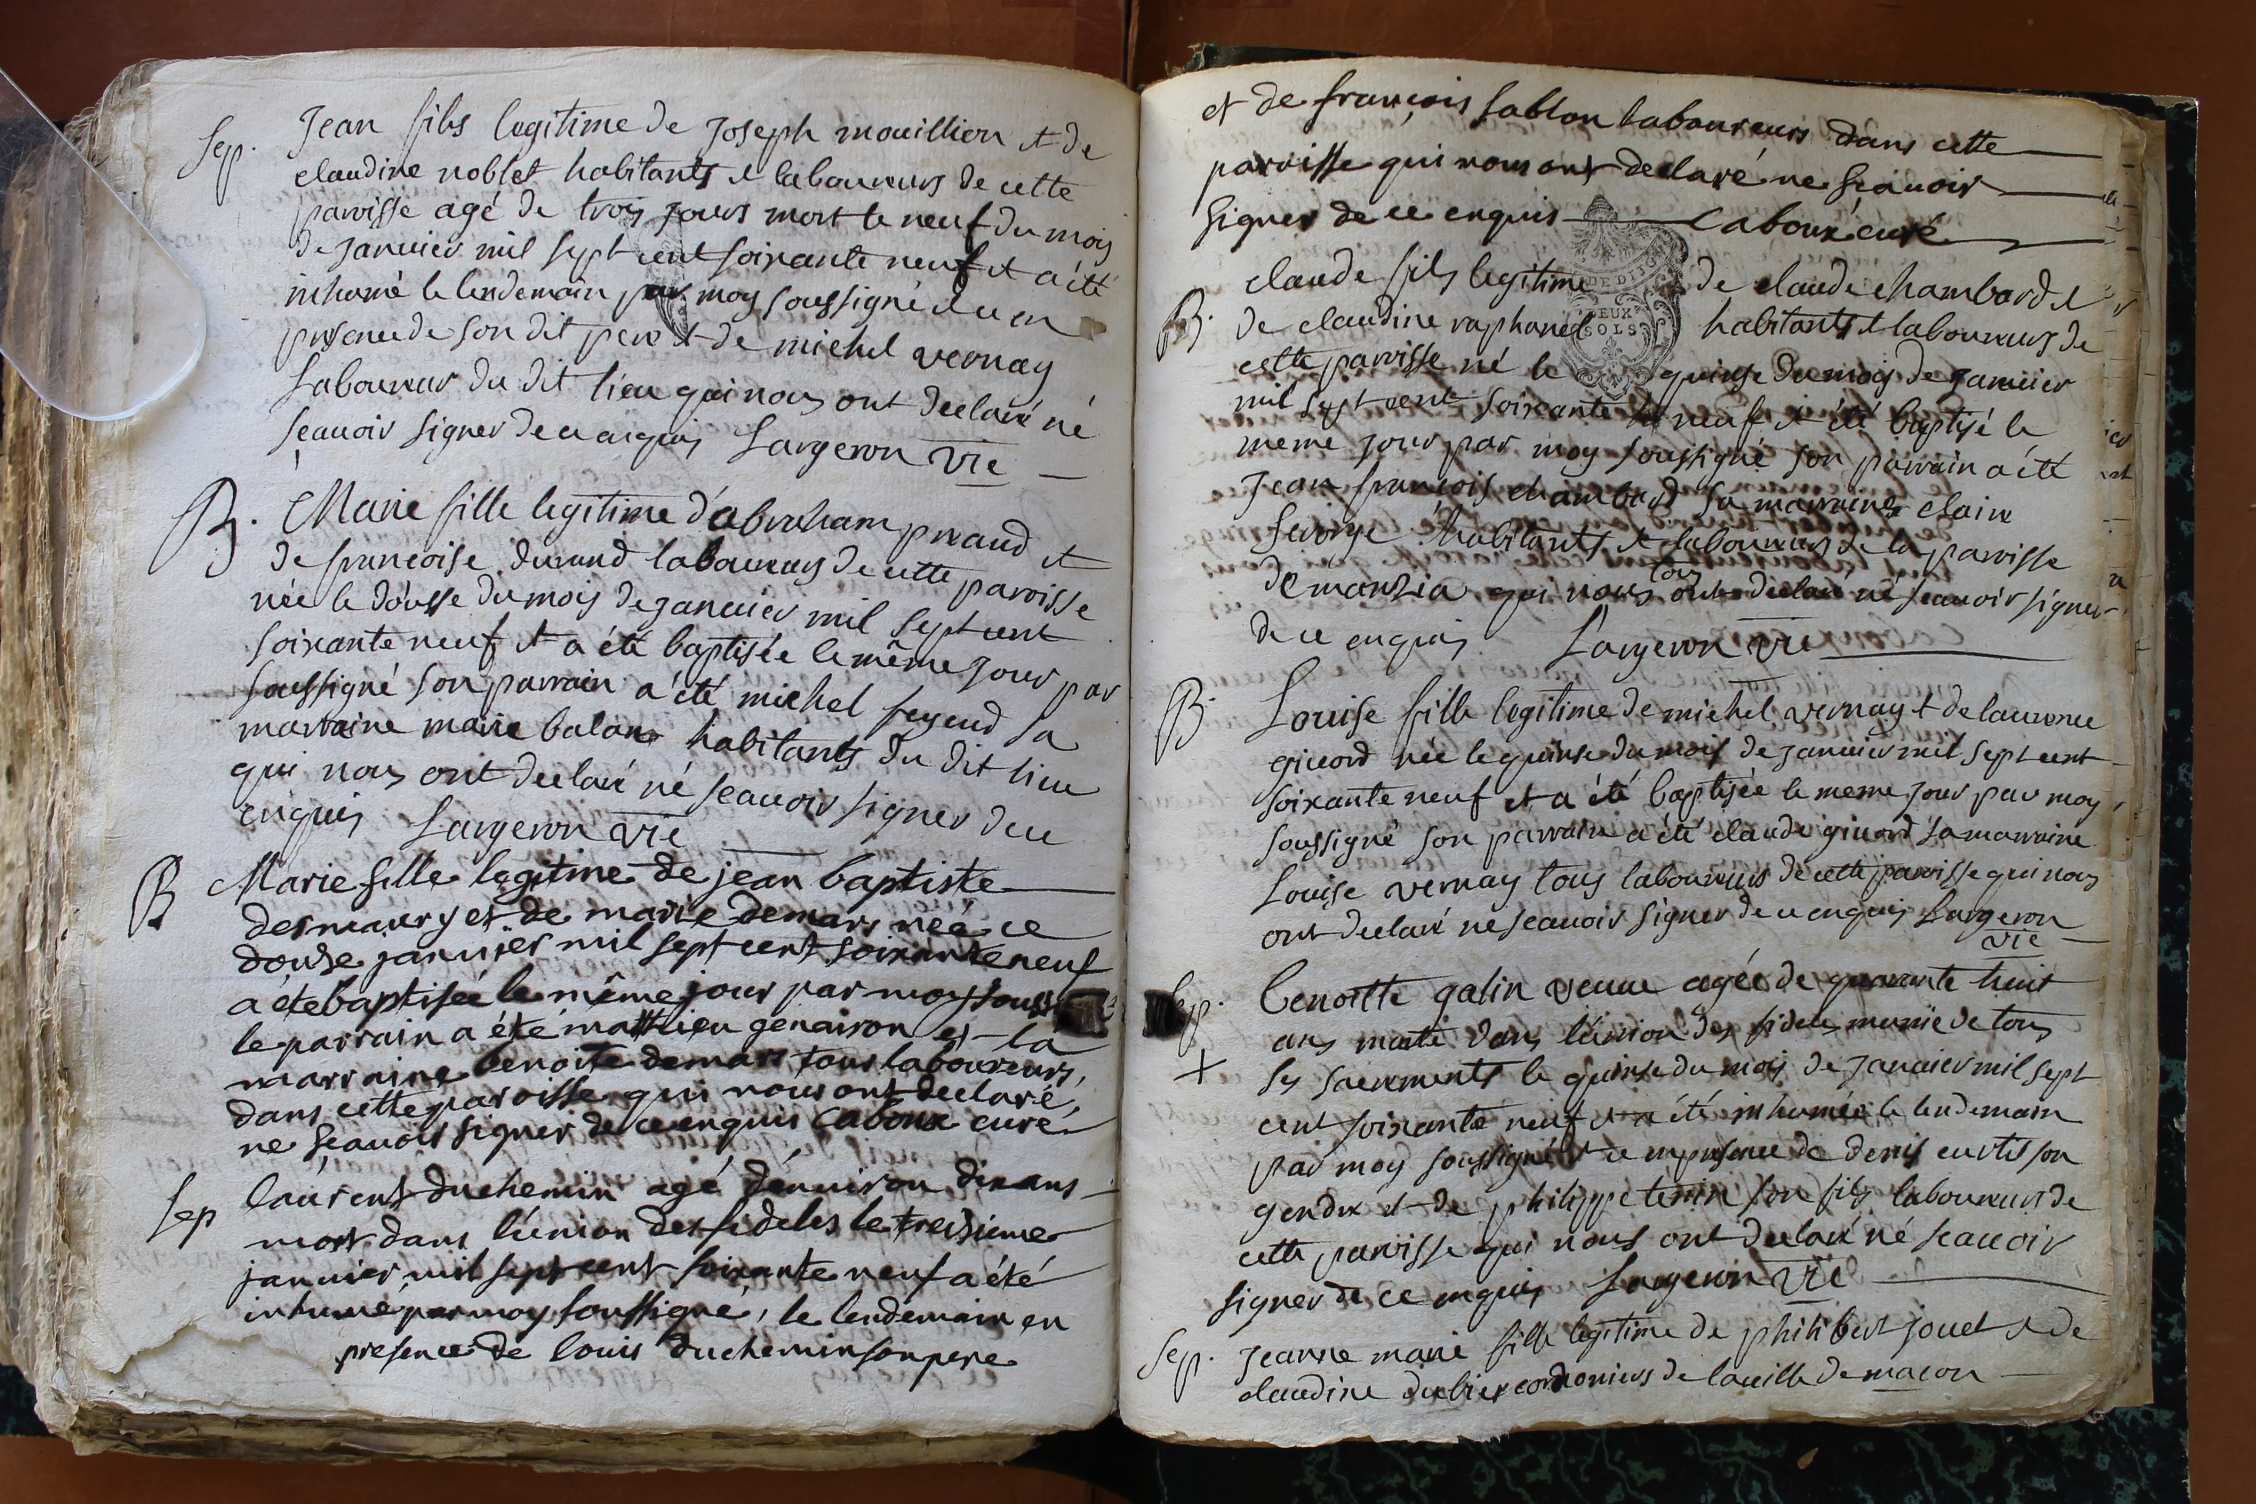 Sep. Jean fils legitime de Joseph mouillion et de
claudine noblet habitants et laboureurs de cette
paroisse agé de trois jours mort le neuf du mois
de janvier mil sept cent soixante neuf et a été
inhumé le lendemain par moy soussigné et ce en
presence de son dit pere et de michel vernay
Laboureur du dit lieu qui nous ont declaré né
sçavoir signer de ce enquis Largeron vic
B. Marie fille legitime d'abraham preaud et
de francoise durand laboureurs de cette paroisse
née le dousse du mois de janvier mil sept cent
soixante neuf et a été baptisée le même jour par
soussigné son parrain a été michel feyeud sa
marraine marie balan habitants du dit lieu
qui nous ont declaré né sçavoir signer de ce
enquis Largeron vic
B Marie fille legitime de jean baptiste
desmaury et de marie demars neé ce
douze janvier mil sept cent soixante neuf
a été baptisée le même jour par moy souss
le parrain a été matthieu genairon et la
marraine benoite demars tous laboureurs,
dans cette paroisse qui nous ont declaré,
ne sçavoir signer de ce enquis Caboux curé
Sep laurent duchemin agé d'environ dix ans
mort dans l'union des fideles le treizieme
janvier mil sept cent soixante neuf a été
inhumé par moy soussigné, le lendemain en
presence de louis duchemin son pere
et de françois sablon laboureurs dans cette
paroisse qui nous ont declaré ne sçavoir
signer de ce enquis Caboux curé
DEUX
SOLS
B. claude fils legitime de claude chambard et
de claudine raphanel habitants et laboureurs de
cette paroisse né le quinse du mois de janvier
mil sept cent soixante neuf et été baptisé le
meme jour par moy soussigné son parrain a été
Jean françois chambard sa marraine claire
habitants et laboureurs de la paroisse
tous
de manzia qui nous ont declaré né sçavoir signer
de ce enquis Largeron vic
B. Louise fille legitime de michel vernay et de laurence
giuord née le quinse du mois de janvier mil sept cent
soixante neuf et a été baptisée le meme jour par moy
soussigné son parrain a été claude giuord sa marraine
Louise vernay tous laboureurs de cette paroisse qui nous
ont declaré ne sçavoir signer de ce enquis Largeron
vic
Sep. + benoitte galin veuve agée de quarante huit
ans morte dans l'union des fideles munie de tous
ses sacrements le quinse du mois de janvier mil sept
cent soixante neuf et a été inhumée le lendemain
par moy soussigné et ce en presence de denis curtis son
gendre et de philippe tenin son fils laboureurs de
cette paroisse qui nous ont declaré né scavoir
signer de ce enquis Largeron vic
Sep. Jeanne marie fille legitime de philibert jouet et de
claudine dubier cordoniers de la ville de macon